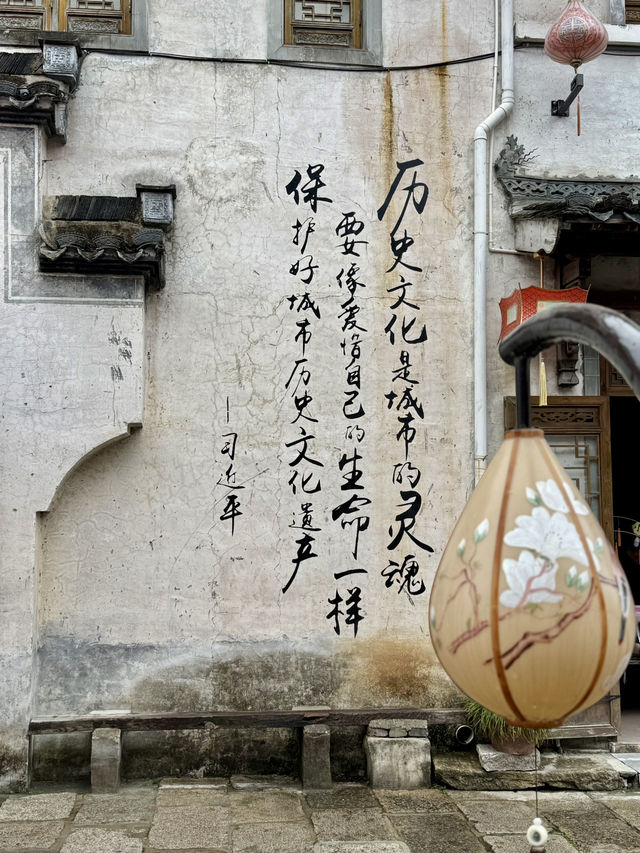 历史文化是城市的灵魂
要像爱惜自己的生命一样
保护好城市历史文化遗产
—习近平